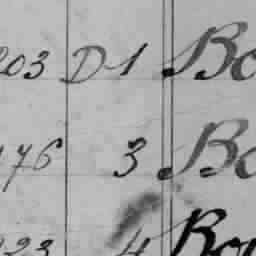 203 D 1 Bo
176 3 Bo
223 4 Bou